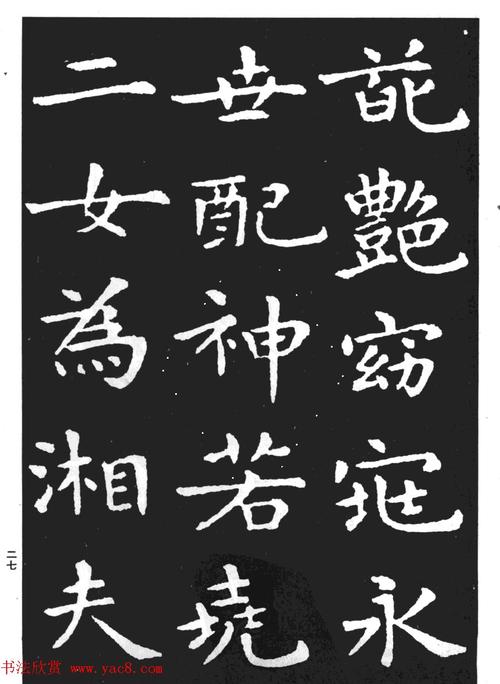 葩艶窈窕永
世配神若堯
二女為湘夫
二七
书法欣赏 www.yac8.com